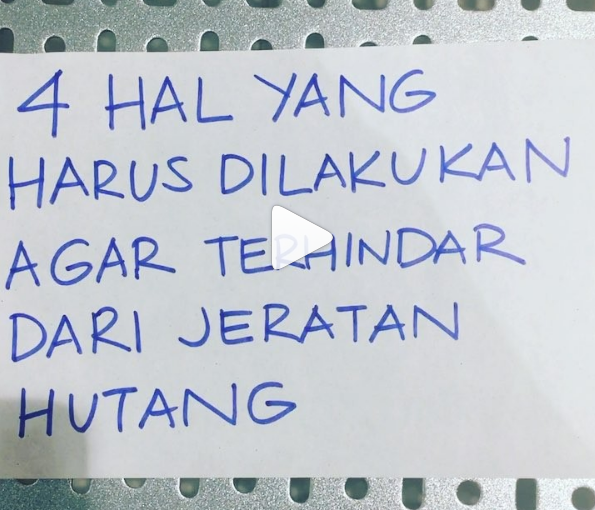 4 HAL YANG
HARUS DILAKUKAN
AGAR TERHINDAR
DARI JERATAN
HUTANG